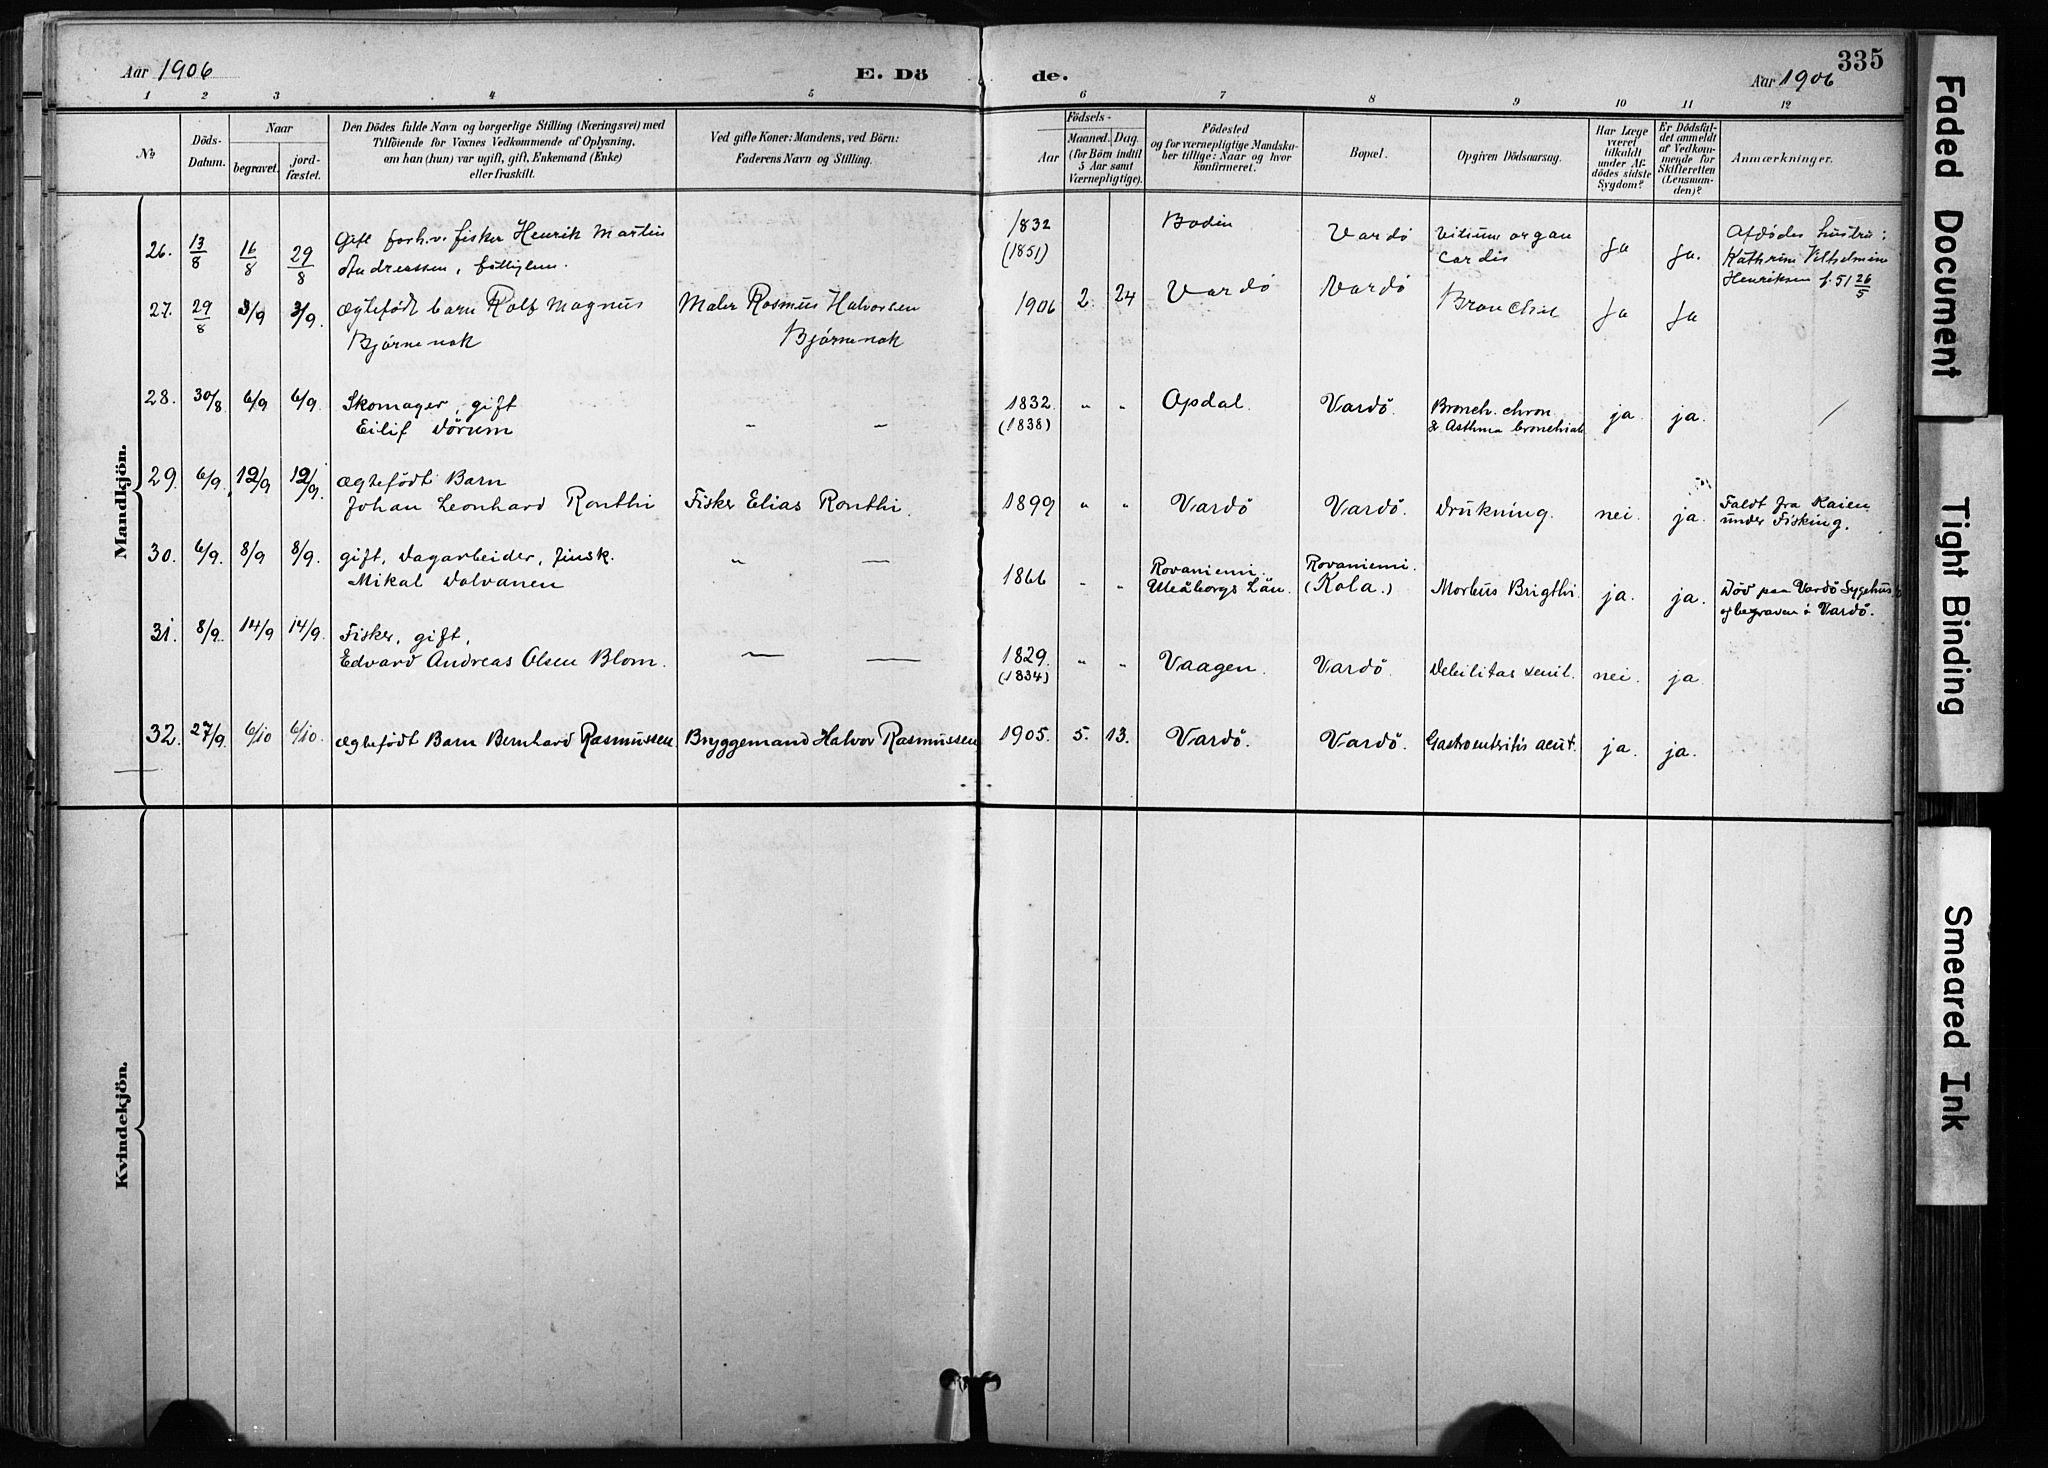 335
Aar 1906
E. Dö de.
Aar 1906
1 2 3 4 5 6 7 8 9 10 11 12
№
Döds-Datum.
Naar
begravet.
jord-fæstet.
Den Dödes fulde Navn og borgerlige Stilling (Næringsvei) med
Tilföiende for Voxnes Vedkommende af Oplysning,
om han (hun) var ugift, gift, Enkemand (Enke)
eller fraskilt.
Ved gifte Koner: Mandens, ved Börn:
Faderens Navn og Stilling.
Födsels-
Aar
Maaned. Dag.
(for Börn indtil
5 Aar samt
Værnepligtige).
Födested
og for værnepligtige Mandska-
ber tillige: Naar og hvor
konfirmeret.
Bopæl.
Opgiven Dödsaarsag.
Har Læge
været
tilkaldt
under Af-
dödes sidste
Sygdom?
Er Dödsfal-
det anmeldt
af Vedkom-
mende for
Skifteretten
(Lensman-
den)?
Anmærkninger.
Mandkjön.
26. 13/8 16/8 29/8 Gift forh.v. fisker Henrik Martin
Andreassen, fattiglem.
1832 (1851) Bodin Vardö Vitium organ cordis Ja Ja.
Afdödes hustru:
Kathrine Vilhelmine
Henriksen f. 51 26/5
27. 29/8 3/9 3/9. Ægtefødt barn Rolf Magnus
Bjørnenak
Maler Rasmus Halvorsen
Bjørnenak
1906 2. 24 Vardö Vardö Bronchit Ja Ja
28. 30/8 6/9 6/9. Skomager, gift
Eilif Dörum
" "
1832. (1838) " " Opdal. Vardö. Bronch. chron.
& Asthma bronchial. ja ja. /
29. 6/9. 12/9 12/9. Ægtefödt Barn
Johan Leonhard Ronthi
Fisker Elias Ronthi.
1899 " " Vardö Vardö. Drukning. nei. ja.
Faldt fra Kaien
under Fisking.
30. 6/9. 8/9 8/9. gift, Dagarbeider, finsk.
Mikal Dolvanen
" —
1866 " " Rovaniemi.
Uleåborgs Län.
Rovaniemi.
(Kola.)
Morbus Brigthi. ja. ja.
Död paa Vardö Sygehus
og begraven i Vardö.
31. 8/9. 14/9 14/9. Fisker, gift,
Edvard Andreas Olsen Blom.
— —
1829. (1834) " " Vaagen. Vardö. Debilitas senil. nei. ja.
32. 27/9. 6/10 6/10. Ægtefödt Barn Bernhard Rasmussen
Bryggemand Halvor Rasmussen
1905. 5. 13. Vardö. Vardö. Gastroenteritis acut. ja. ja.
Kvindekjön.
Faded Document
Tight Binding
Smeared Ink